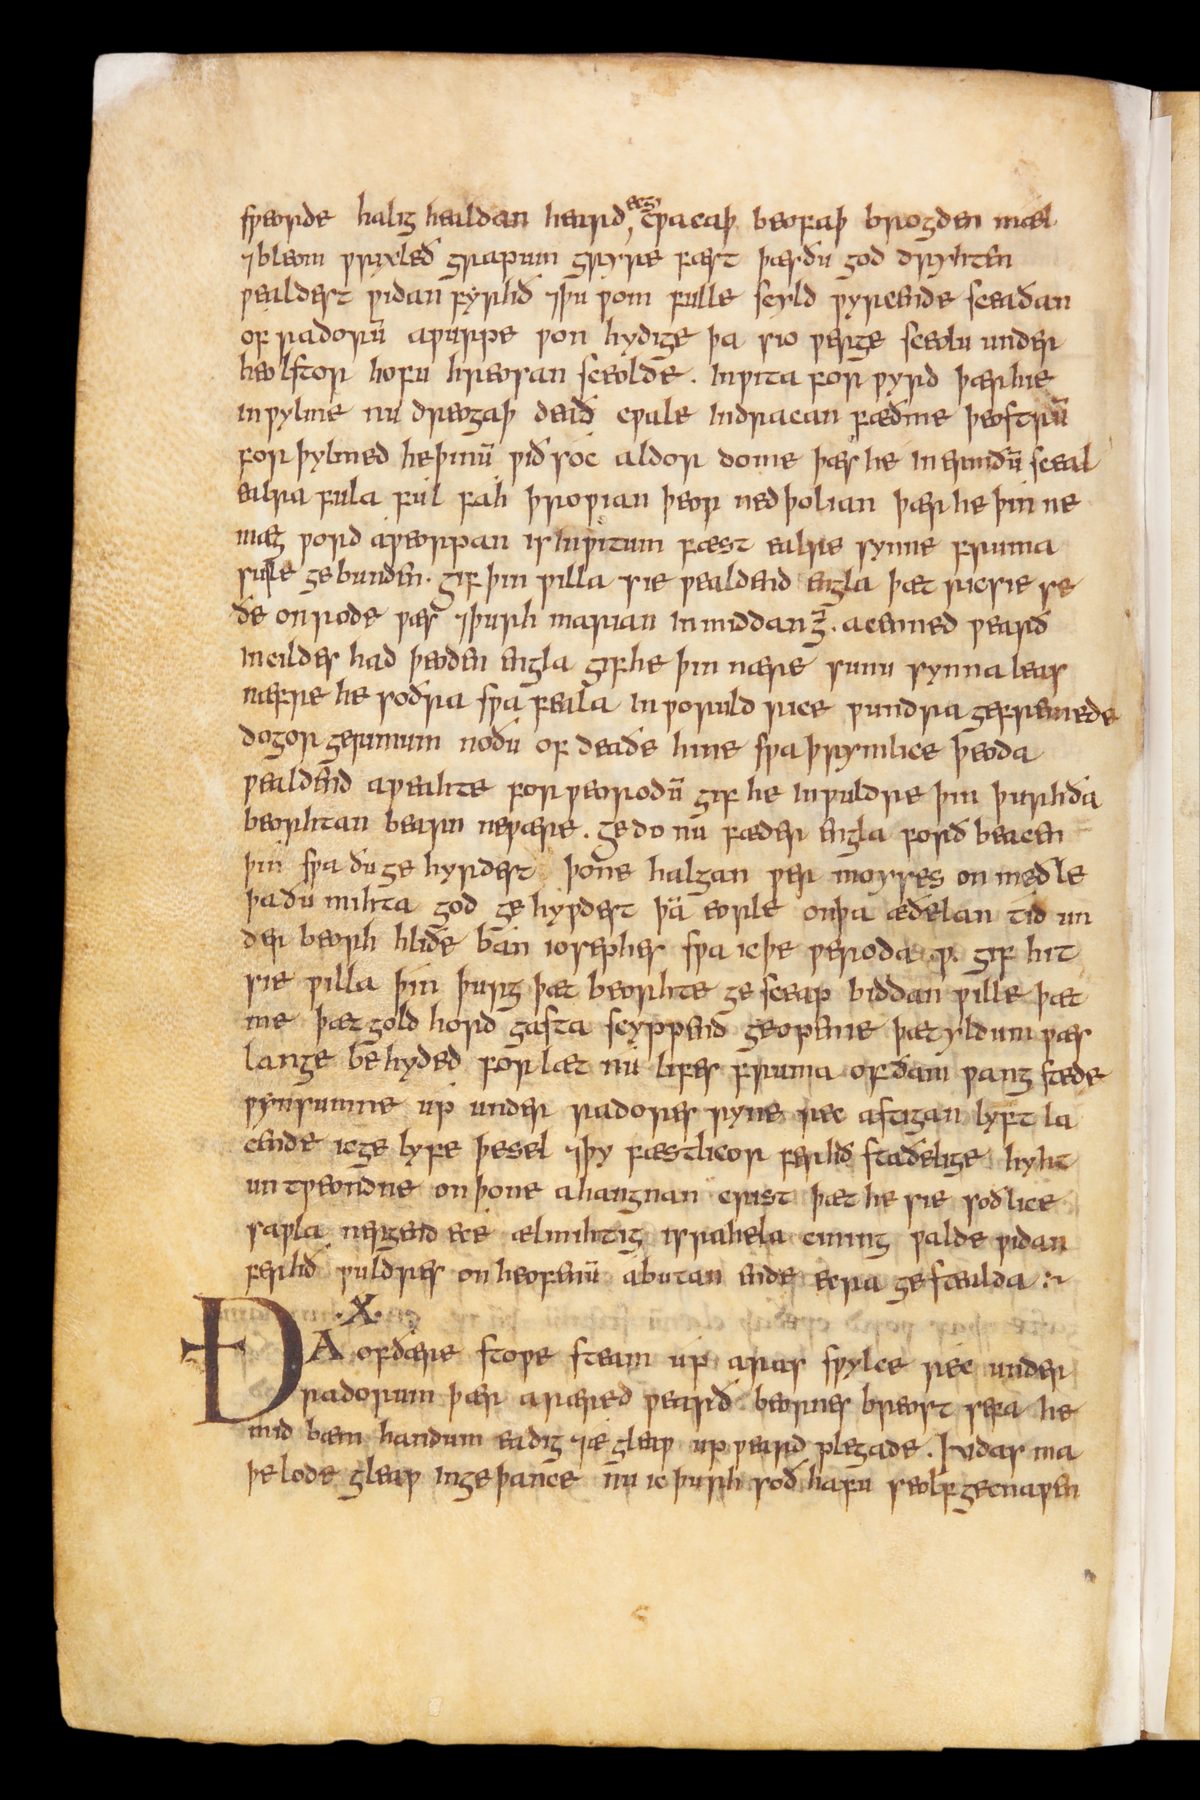 sƿeorde halig healdan heard ecg cƿacaþ beofaþ brogden mæl
⁊bleom ƿrixleð grapum gryre fæst þærðu god dryhten
ƿealdest ƿidan fyrhð ⁊þu ƿom fulle scyld ƿyrcende sceaðan
of radorū aƿurpe ƿon hydige þa sio ƿerge sceolu under
heolstor hofu hreosan sceolde. inƿita forƿyrd þær hie
inƿylme nu dreogaþ deað cƿale indracan fæðme þeostrū
forþylmed heþinū ƿið sóc aldor dome þæs he in ermðū sceal
ealra fula ful fah þroƿian þeoƿ ned þolian þær he þin ne
mæg ƿord aƿeorpan is inƿitum fæst ealre synne fruma
susle gebunden. gif þin ƿilla sie ƿealdend engla þæt ricsie se
ðe on rode ƿæs ⁊þurh marian inmiddang̅. acenned ƿearð
incildes had þeoden engla gif he þin nære sunu synna leas
næfre he soðra sƿa feala inƿoruld rice ƿundra gefremede
dogor gerimum noðu of deaðe hine sƿa þrymlice þeoda
ƿealdend aƿeahte for ƿeorodū gif he inƿuldre þin þurhða
beorhtan bearn neƿære. gedo nu fæder engla forð beacen
þin sƿa ðuge hyrdest þone halgan ƿer moyses on meðle
þaðu mihta god gehyƿdest þā eorle onþa æðelan tid un
der beorh hliðe bán iosephes sƿa icþe ƿeroda .ƿ. gif hit
sie ƿilla þin þurg þæt beorhte gesceap biddan ƿille þæt
me þæt gold hord gasta scyppend geopenie þæt yldum ƿæs
lange behyded forlæt nú lifes fruma of ðam ƿang stede
ƿynsumne up under radores ryne rec astigan lyft la
cende icge lyfe þesel ⁊þy fæstlicor ferhð staðelige hyht
untƿeondne on þone ahangnan crist þæt he sie soðlice
saƿla nergend éce ælmihtig israhela cining ƿalde ƿidan
ferhð ƿuldres on heofenū abutan ende ecra gestealda :~
.X.
ÐA ofðære stoƿe steam up aras sƿylce réc under
radorum þær aræred ƿearð beornes breost sefa he
mid bæm handum eadig ⁊æ gleaƿ upƿeard plegade. Iudas ma
þelode gleaƿ ingeþance nu ic þurh soð hafu seolf gecnaƿen